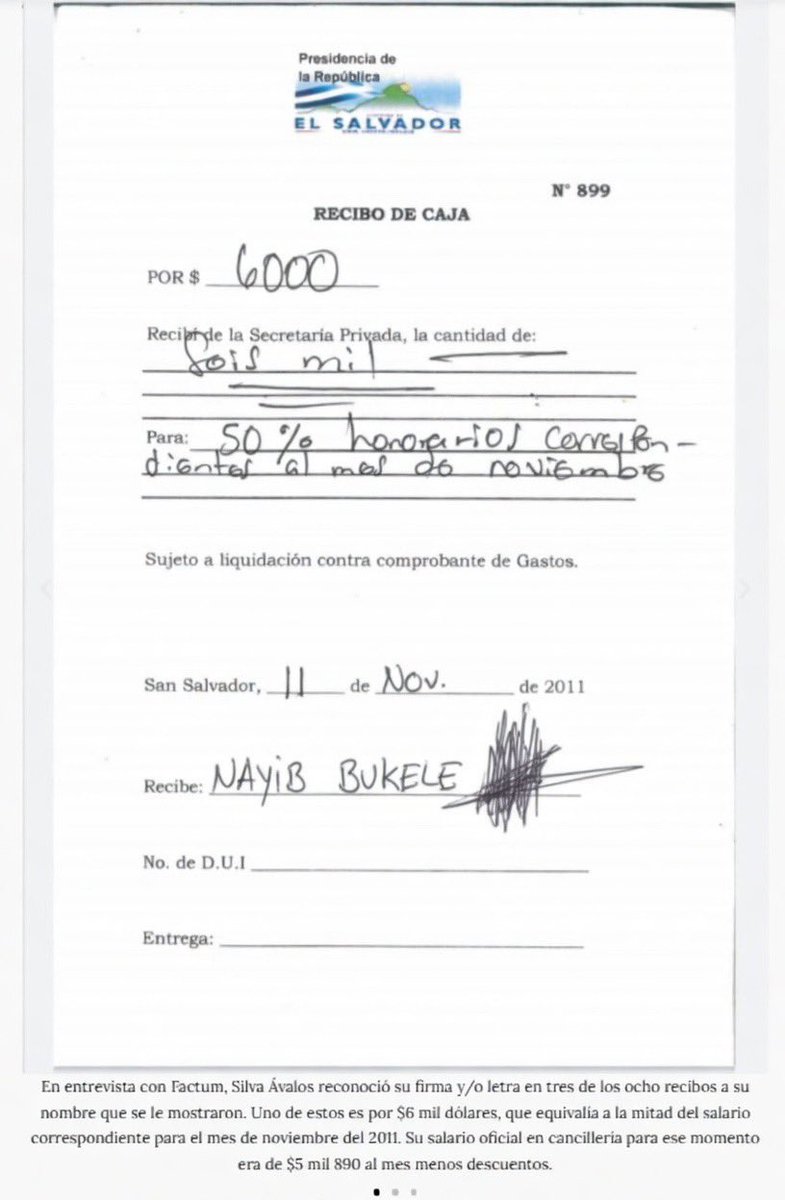 Presidencia de
la República
EL SALVADOR
N° 899
RECIBO DE CAJA
POR $ 6000
Recibí de la Secretaría Privada, la cantidad de:
Seis mil
Para: 50 % honorarios correspon-
dientes al mes de noviembre
Sujeto a liquidación contra comprobante de Gastos.
San Salvador, 11 de Nov. de 2011
Recibe: NAYIB BUKELE
No. de D.U.I
Entrega:
En entrevista con Factum, Silva Ávalos reconoció su firma y/o letra en tres de los ocho recibos a su
nombre que se le mostraron. Uno de estos es por $6 mil dólares, que equivalía a la mitad del salario
correspondiente para el mes de noviembre del 2011. Su salario oficial en cancillería para ese momento
era de $5 mil 890 al mes menos descuentos.